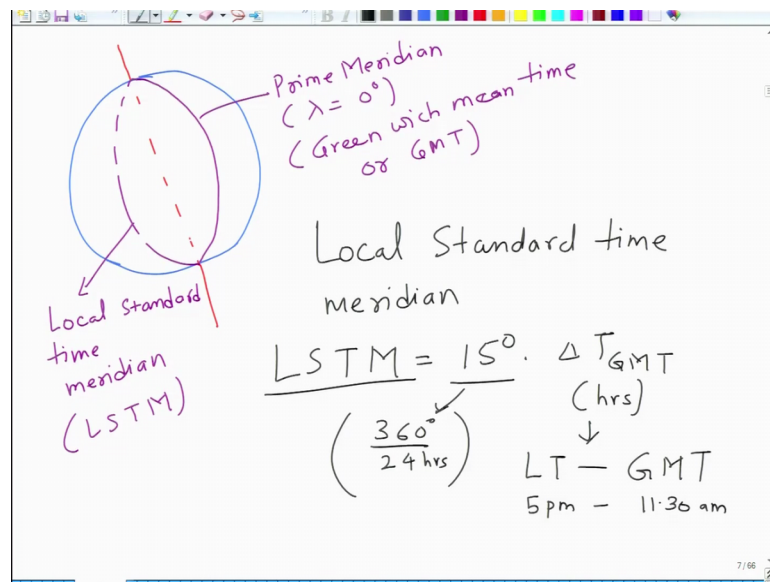 Prime Meridian
(λ = 0°)
(Green wich mean time
or GMT)
Local Standard time
meridian
Local Standard
time
meridian
(LSTM)
LSTM = 15°. Δ T_GMT
(hrs)
(360° / 24 hrs)
LT — GMT
5 pm — 11.30 am
7 / 66